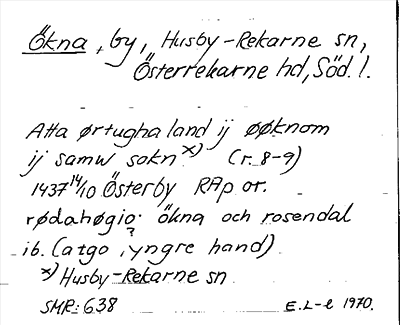 Ökna, by, Husby-Rekarne sn,
Österrekarne hd, Söd. l.
Atta ørtugha land ij øøknom
ij samw sokn x) (r. 8-9)
1437 14/10 Österby RAp or.
rødahøgio? ökna och rosendal
ib. (atgo, yngre hand)
x) Husby-Rekarne sn
SMR: 638
E.L-l 1970.